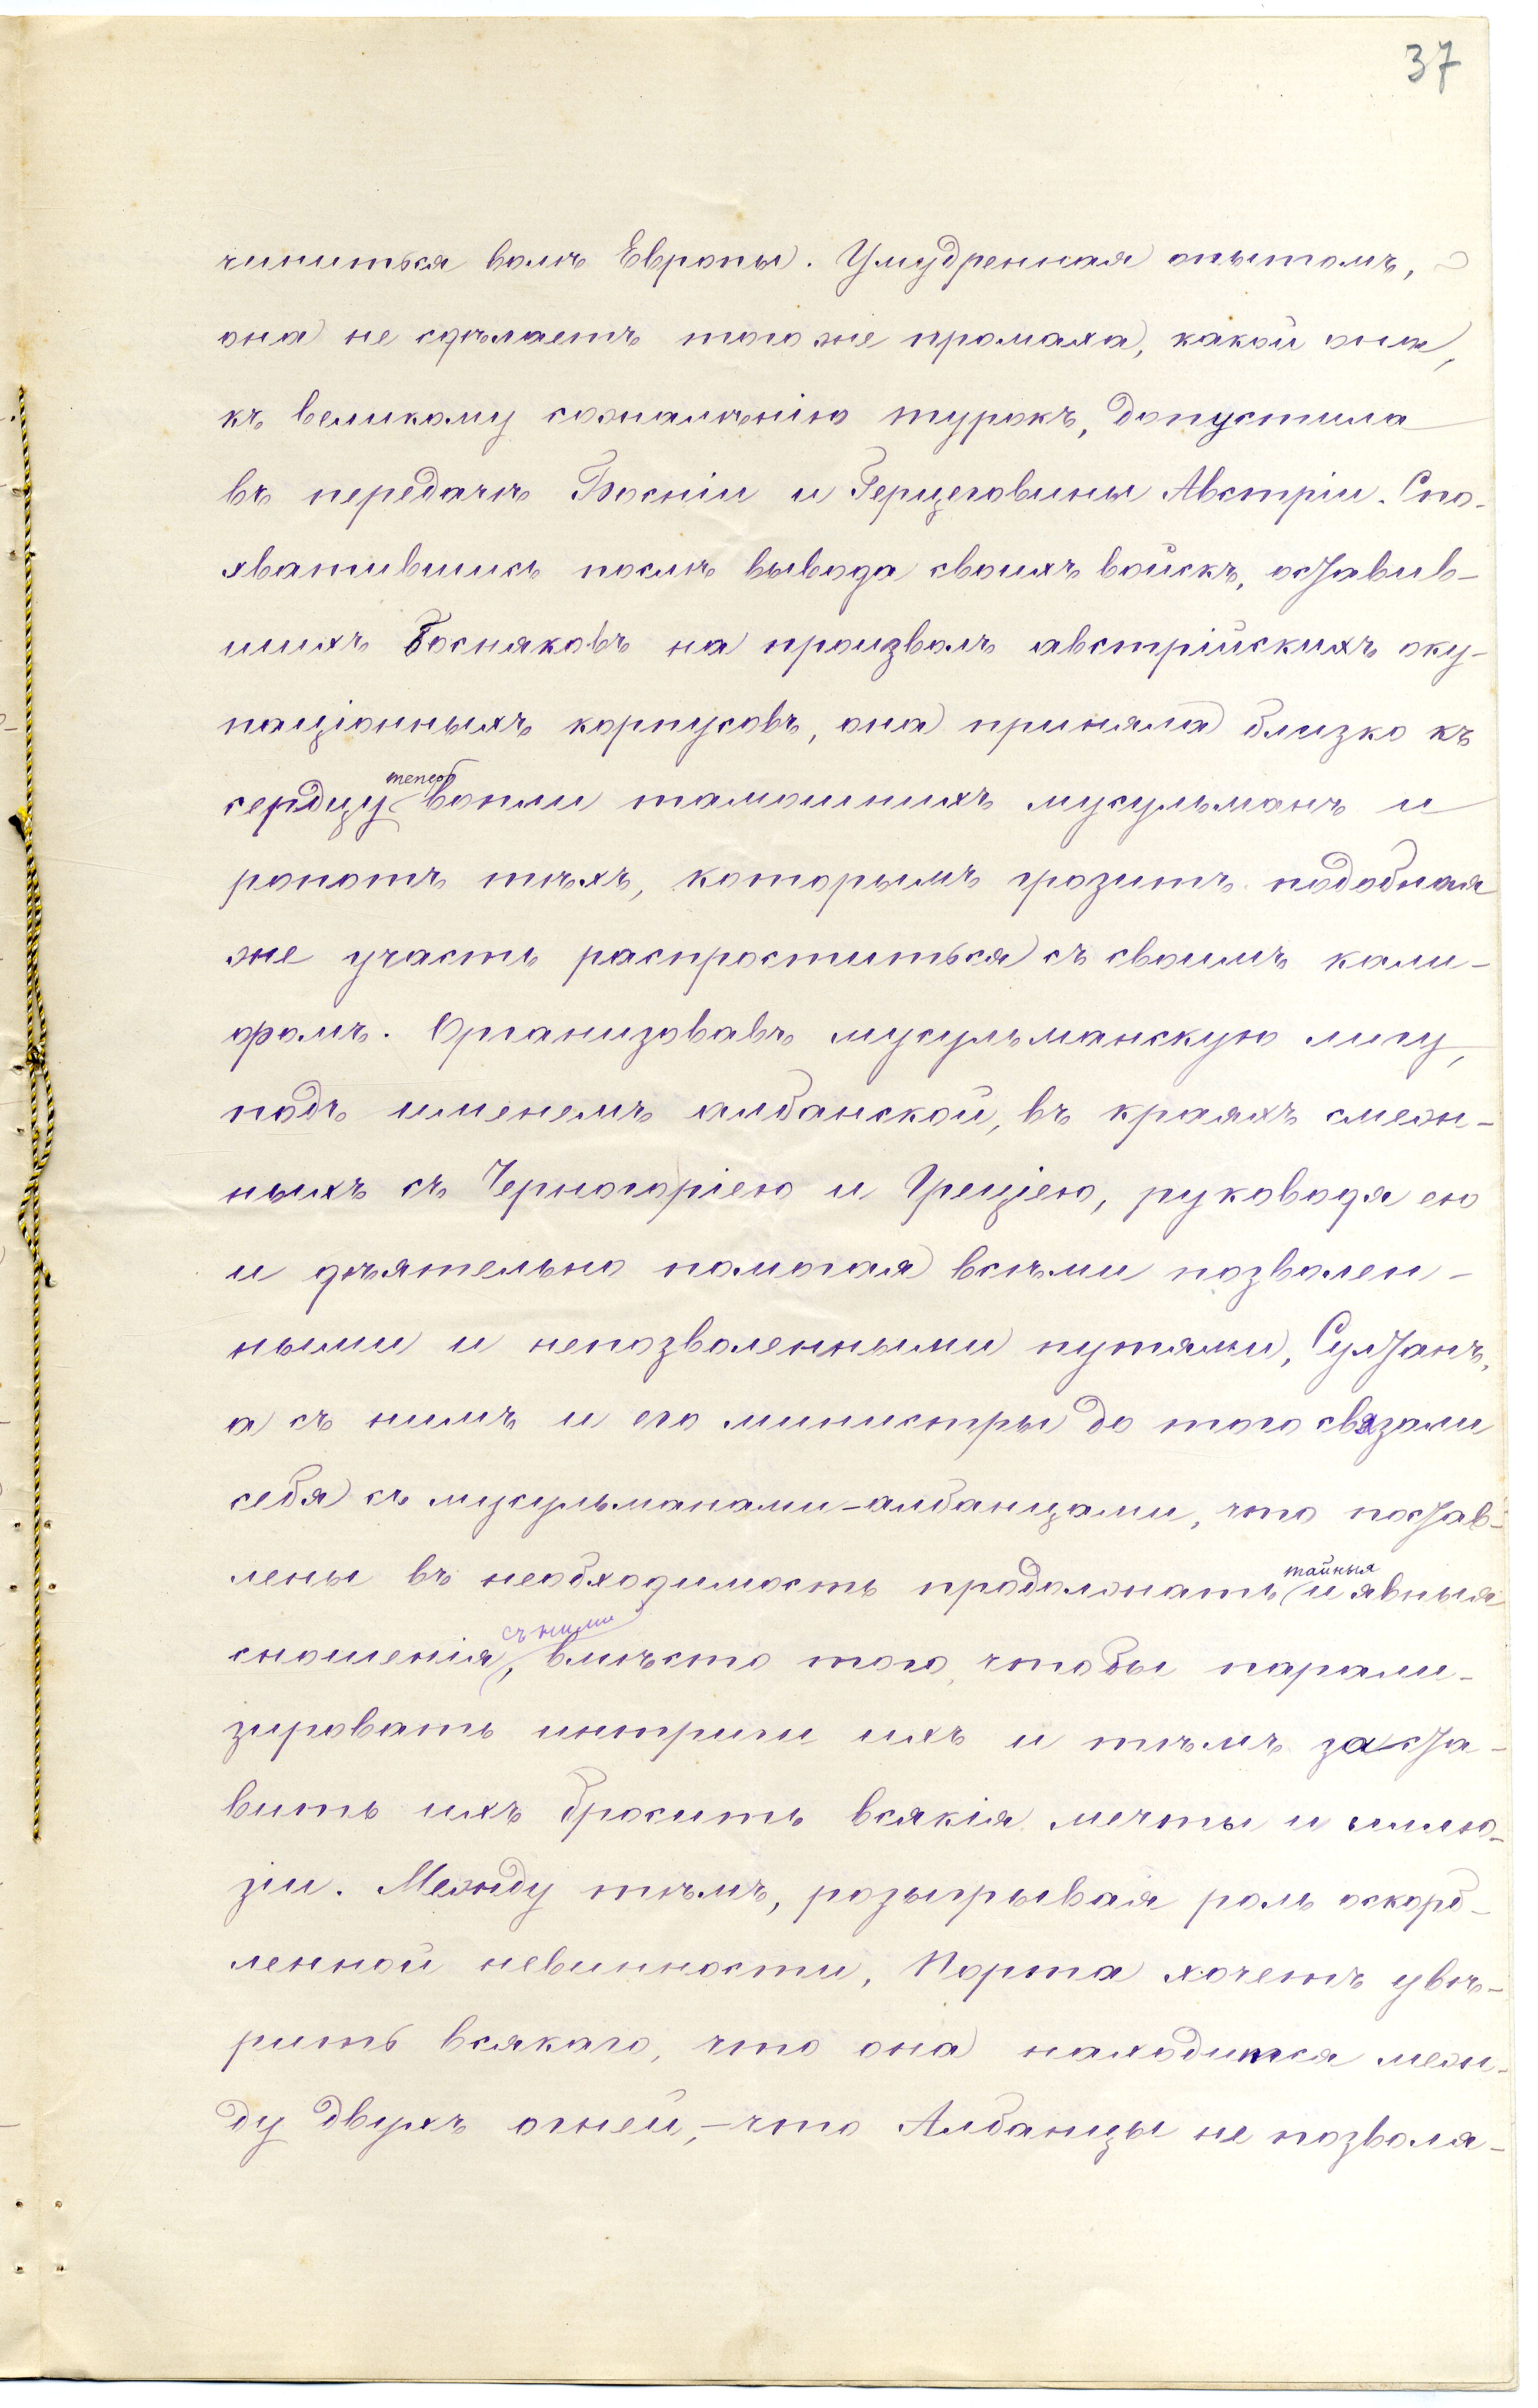 37
чиниться волѣ Европы. Умудренная опытомъ,
она не сдѣлаетъ того же промаха, какой она,
къ великому сожалѣнію турокъ, допустила
въ передачѣ Босніи и Герцеговины Австріи. Спо-
хватившись послѣ вывода своихъ войскъ, оставив-
шихъ Босняковъ на произволъ австрійскихъ оку-
паціонныхъ корпусовъ, она приняла близко къ
теперь
сердцу вопли тамошнихъ мусульманъ и
ропотъ тѣхъ, которымъ грозитъ подобная
же участь распроститься съ своимъ кали-
фомъ. Организовавъ мусульманскую лигу,
подъ именемъ албанской, въ краяхъ смеж-
ныхъ съ Черногоріею и Греціею, руководя ею
и дѣятельно помогая всѣми позволен-
ными и непозволенными путями, Султанъ,
а съ нимъ и его министры до того связали
себя съ мусульманами-албанцами, что постав-
тайныя
лены въ необходимость продолжать и явныя
съ ними
сношенія, вмѣсто того, чтобы парали-
зировать интриги ихъ и тѣмъ заста-
вить ихъ бросить всякія мечты и иллю-
зіи. Между тѣмъ, розыгрывая роль оскорб-
ленной невинности, Порта хочетъ увѣ-
рить всякаго, что она находится меж-
ду двухъ огней, – что Албанцы не позволя-